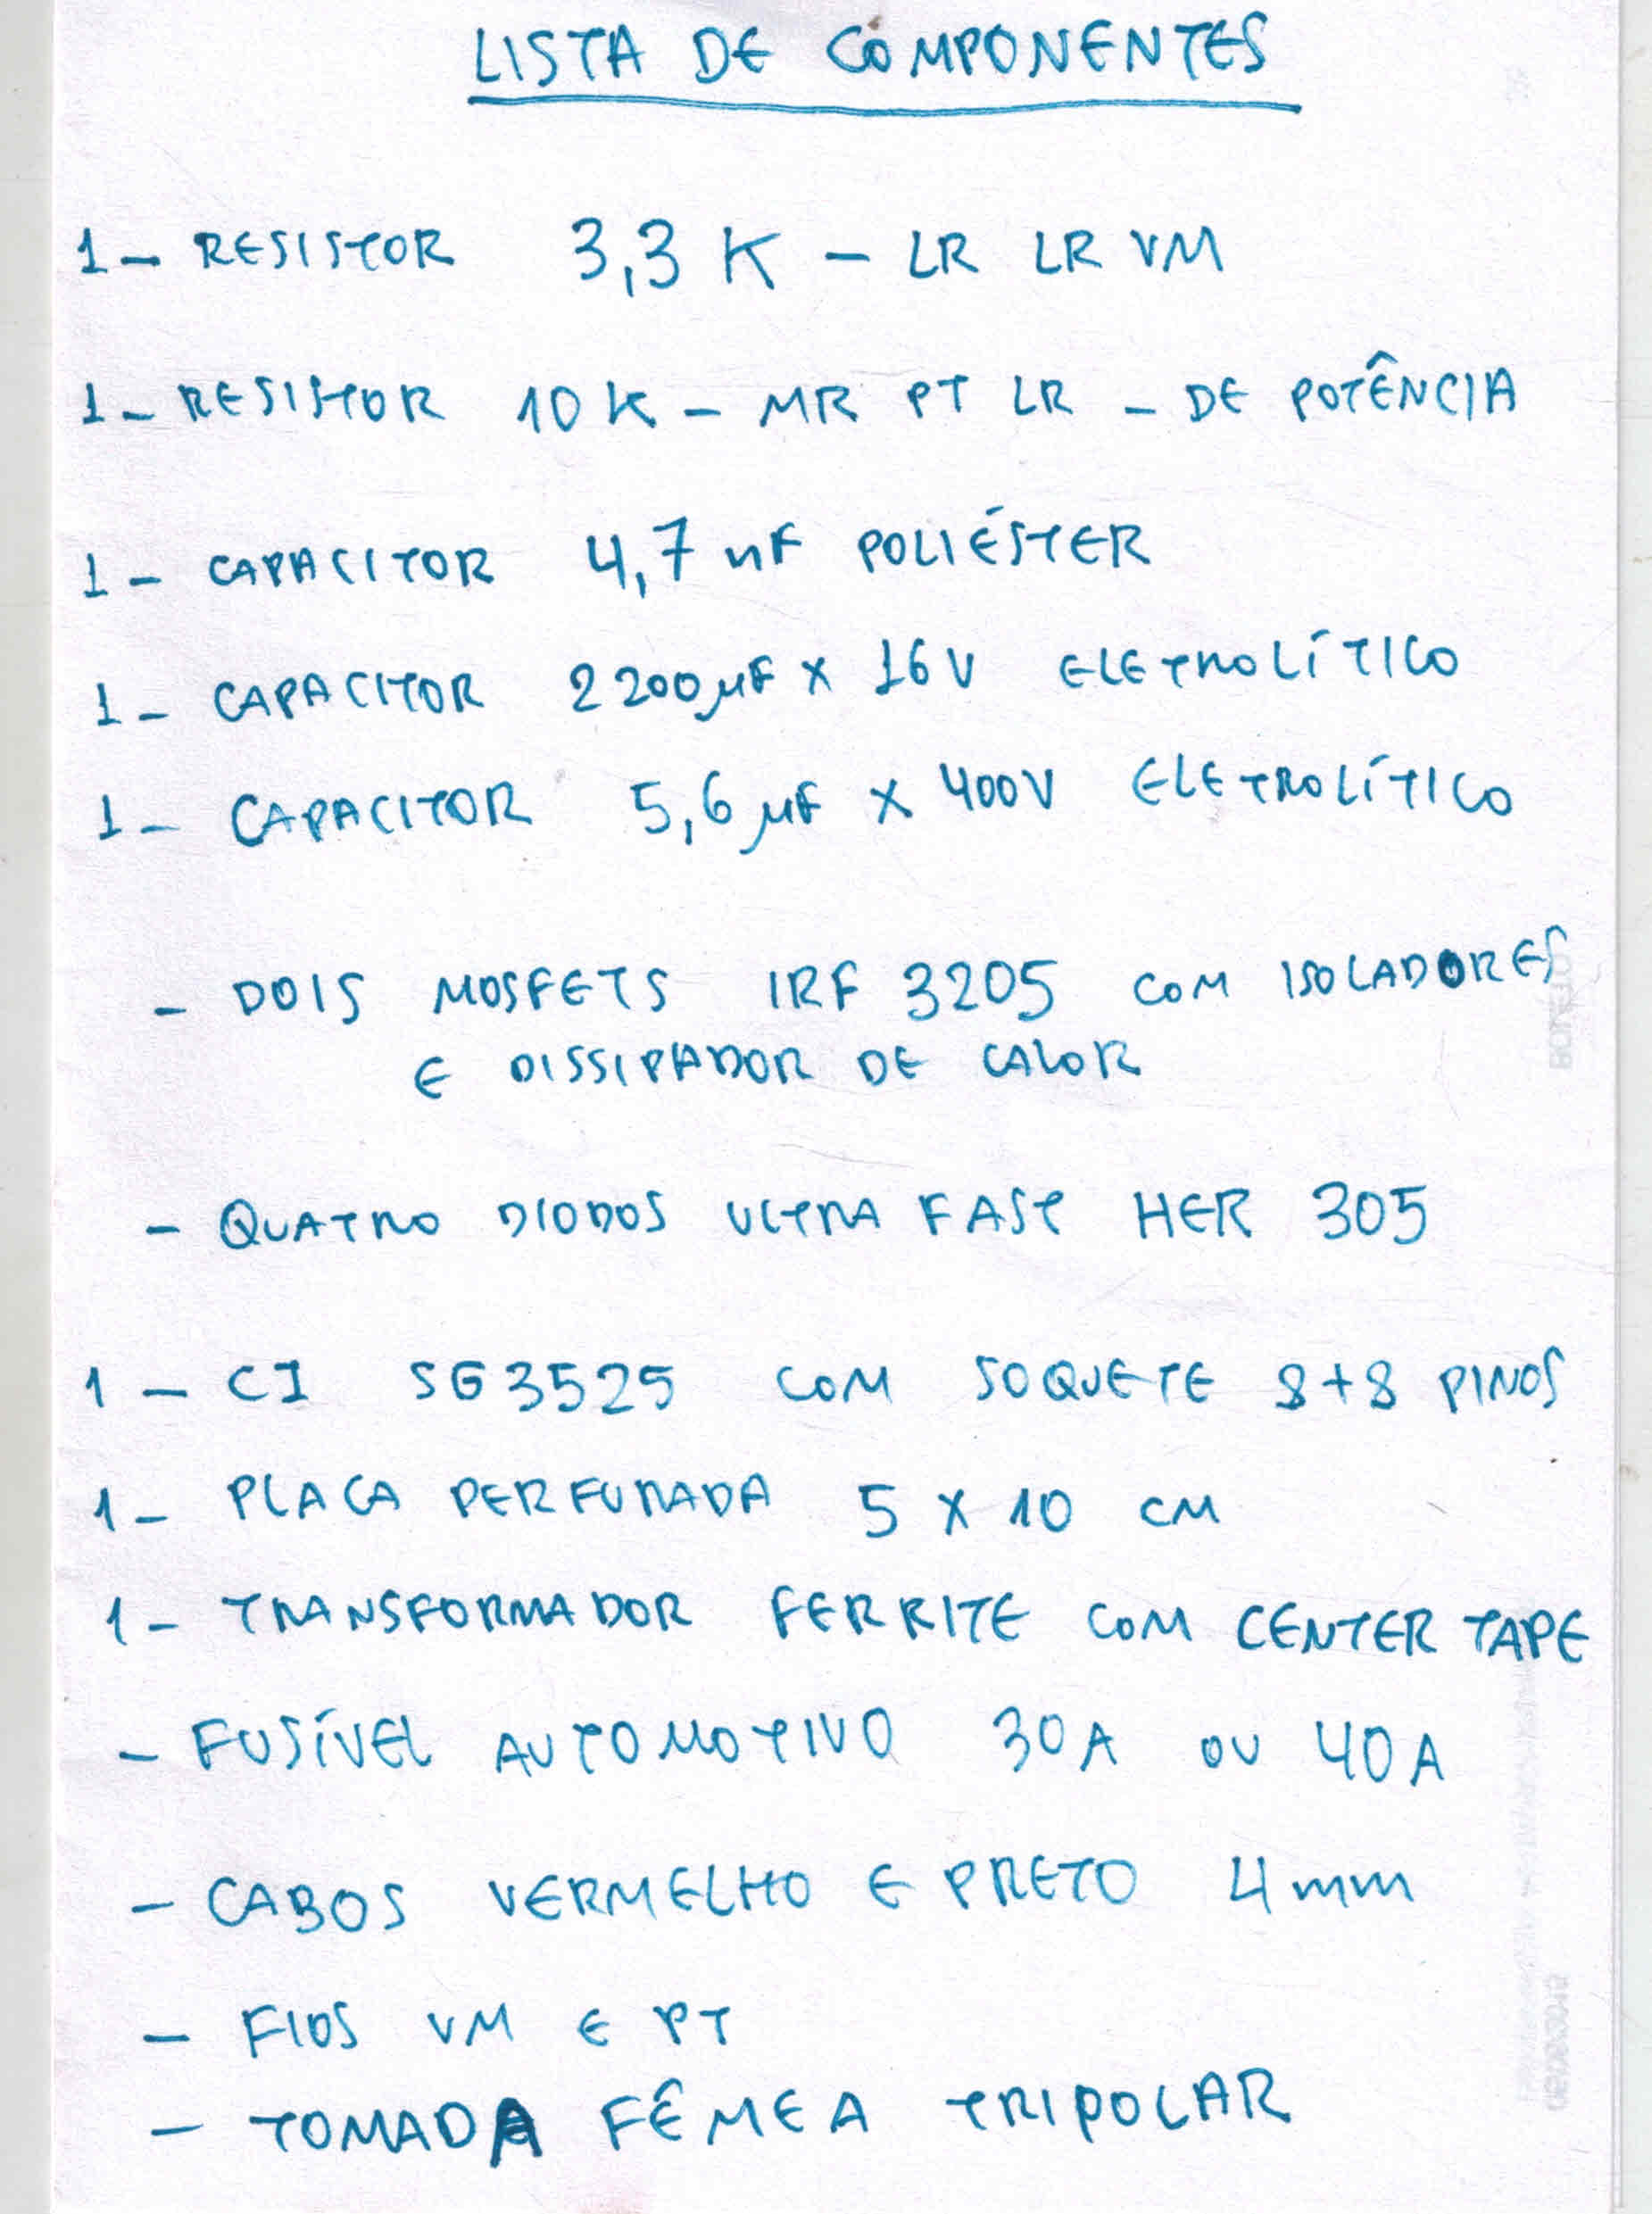 LISTA DE COMPONENTES
1 - RESISTOR 3,3 K - LR LR VM
1 - RESISTOR 10 K - MR PT LR - DE POTÊNCIA
1 - CAPACITOR 4,7 nF POLIÉSTER
1 - CAPACITOR 2200 µF X 16 V ELETROLÍTICO
1 - CAPACITOR 5,6 µF X 400V ELETROLÍTICO
- DOIS MOSFETS IRF 3205 COM ISOLADORES
E DISSIPADOR DE CALOR
- QUATRO DIODOS ULTRA FAST HER 305
1 - CI SG3525 COM SOQUETE 8+8 PINOS
1 - PLACA PERFURADA 5 X 10 CM
1 - TRANSFORMADOR FERRITE COM CENTER TAPE
- FUSÍVEL AUTOMOTIVO 30A OU 40A
- CABOS VERMELHO E PRETO 4mm
- FIOS VM E PT
- TOMADA FÊMEA TRIPOLAR